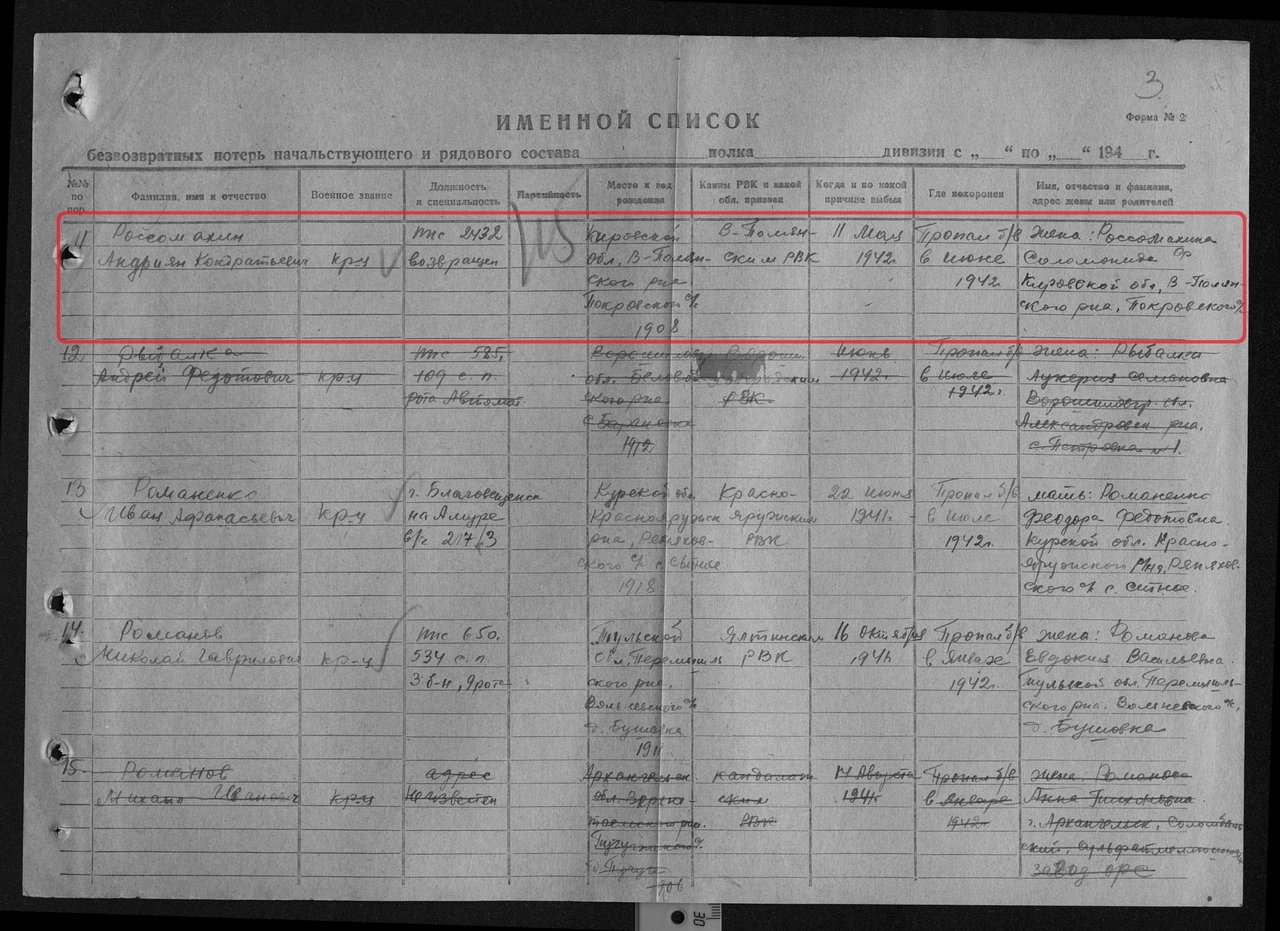 3
ИМЕННОЙ СПИСОК
Форма № 2
безвозвратных потерь начальствующего и рядового состава полка дивизии с „ “ по „ “ 194 г.
№№ по пор.
Фамилия, имя и отчество
Военное звание
Должность и специальность
Партийность
Место и год рождения
Каким РВК и какой обл. призван
Когда и по какой причине выбыл
Где похоронен
Имя, отчество и фамилия, адрес жены или родителей
11 Россомахин ппс 2432 Кировской В-Полян- 11 Мая Пропал б/в жена: Россомахина
Андриян Кондратьевич кр-ц возвращен обл, В-Полян- ским РВК 1942г. в июне Соломонида
ского р-на 1942г. Кировской обл, В-Полян-
Покровский с/с ского р-на, Покровского с/с
1908
12. Рыбалка ппс 525, Июнь Пропал б/в жена: Рыбалка
Андрей Федотович кр-ц 109 с.п. обл. 1942г. в июле Лукерия Семеновна
рота Автомат ского р-на РВК 1942г. Ворошиловгр обл.
Александровск. р-на.
1912 с. Петровка №1.
13 Романенко г. Благовещенск Курской обл. Красно- 22 Июня Пропал б/в мать: Романенко
Иван Афанасьевич кр-ц на Амуре Краснояружск яружским 1941г. в Июле Феодора Федотовна
в/ч 217/3 р-на, Репяхов- РВК 1942г. Курской обл. Красно-
ского с/с с. Ситное яружского р-на, Репяхов-
1918 ского с/с с. Ситное.
14. Романов ппс 650. Тульской Ялтинским 16 октября Пропал б/в жена: Романова
Николай Гаврилович кр-ц 534 с.п. обл. Перемышль РВК 1941г. в Январе Евдокия Васильевна.
3 б-н, 9 рота ского р-на, 1942г. Тульской обл. Перемышль-
д. Бушовка д. Бушовка
1911
15. Романов адрес Архангельск. 17 Августа Пропал б/в жена: Романова
Михаил Иванович кр-ц неизвестен обл. ским 1941г. в Январе Анна
РВК 1942г. г. Архангельск, Соломбаль
ский,
завод орс
30